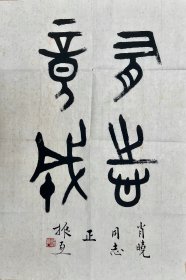 有志
竟成
肖晓
同志
正
振